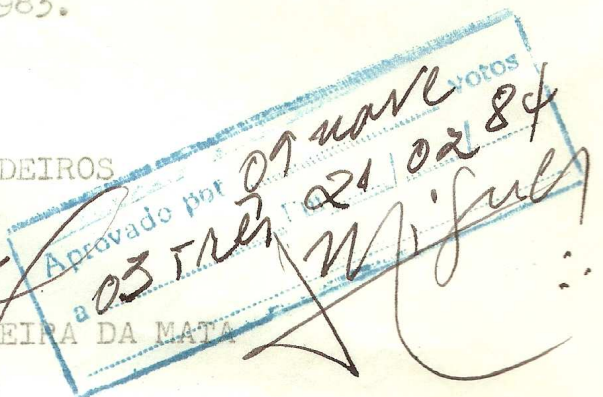 983.
DEIROS
Aprovado por 09 nove votos
a 03 Três 21 / 02 / 84
Miguel
EIRA DA MATA